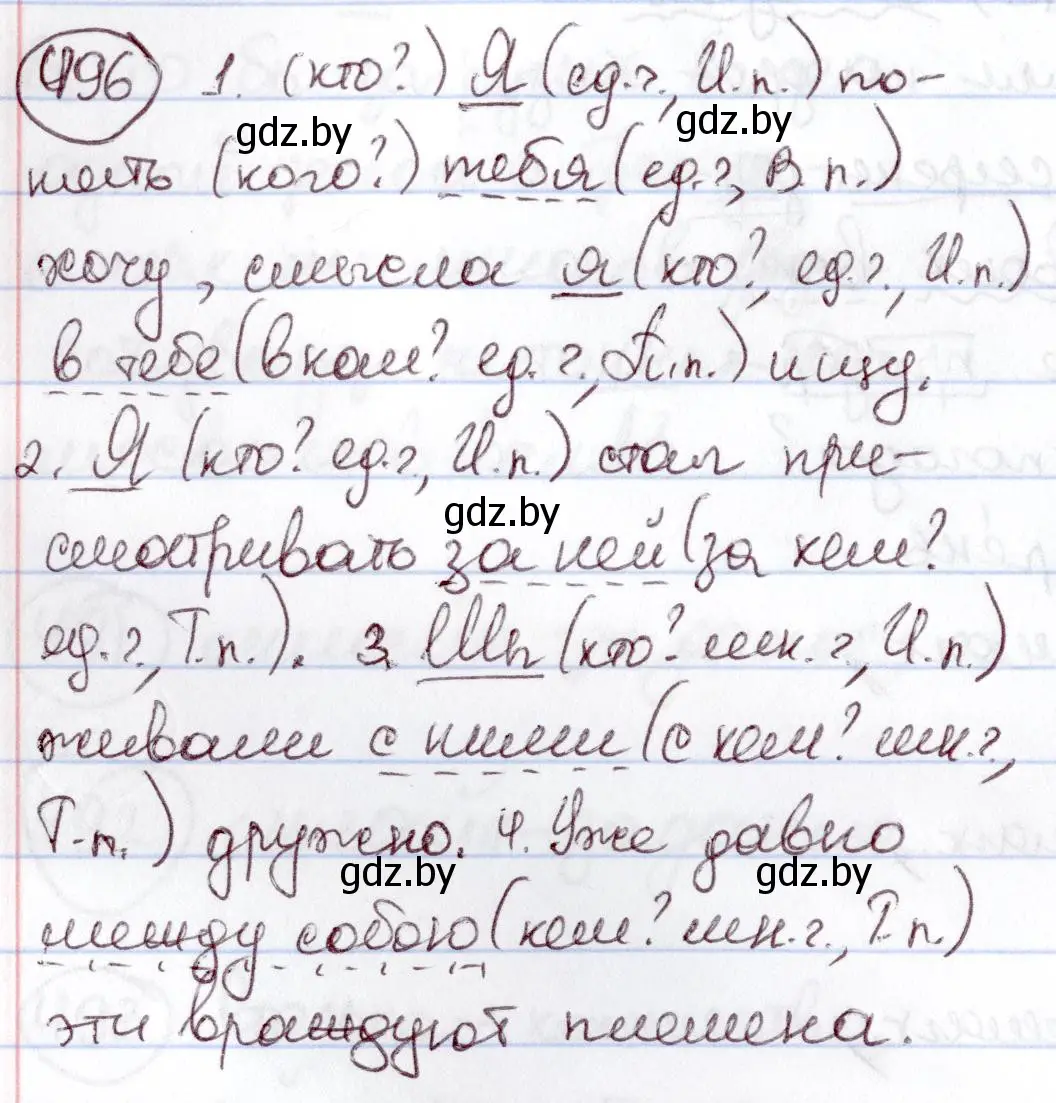 496 1. (кто?) Я (ед.ч., И.п.) по-
нять (кого?) тебя (ед.ч., В.п.)
хочу, смысла я (кто?, ед.ч., И.п.)
в тебе (в ком? ед.ч., П.п.) ищу.
2. Я (кто? ед.ч., И.п.) стал при-
сматривать за ней (за кем?
ед.ч., Т.п.). 3. Мы (кто? мн.ч., И.п.)
живали с ними (с кем? мн.ч.,
Т.п.) дружно. 4. Уже давно
между собою (кем? мн.ч., Т.п.)
эти враждуют племена.
gdz.by
gdz.by
gdz.by
gdz.by
gdz.by